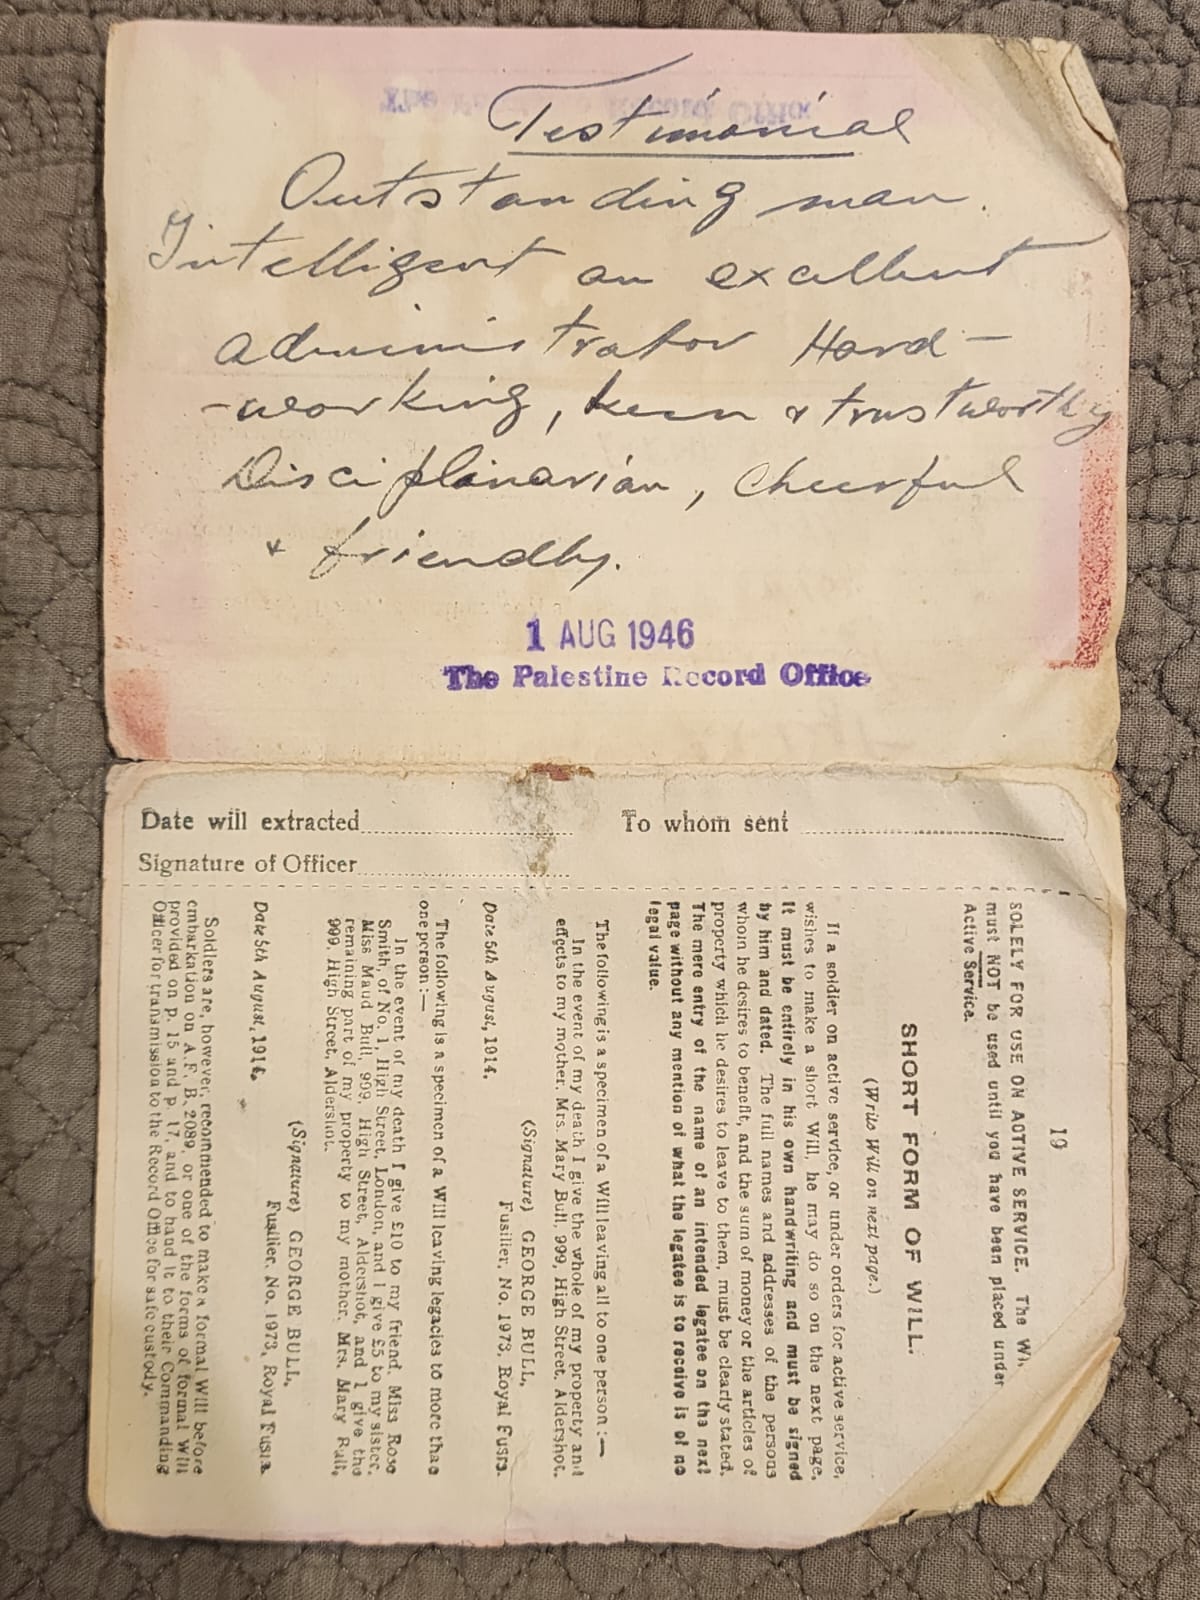 Testimonial
Outstanding man.
Intelligent an excellent
administrator Hard-
-working, keen & trustworthy
Disciplinarian, cheerful
& friendly.
1 AUG 1946
The Palestine Record Office
Date will extracted
To whom sent
Signature of Officer
19
SOLELY FOR USE ON ACTIVE SERVICE. The
must NOT be used until you have been placed under
Active Service.
SHORT FORM OF WILL.
(Write Will on next page.)
If a soldier on active service, or under orders for active service,
wishes to make a short Will, he may do so on the next page.
It must be entirely in his own handwriting and must be signed
by him and dated. The full names and addresses of the persons
whom he desires to benefit, and the sum of money or the articles of
property which he desires to leave to them, must be clearly stated.
The mere entry of the name of an intended legatee on the next
page without any mention of what the legatee is to receive is of no
legal value.
The following is a specimen of a Will leaving all to one person :—
In the event of my death I give the whole of my property and
effects to my mother, Mrs. Mary Bull, 999, High Street, Aldershot.
(Signature) GEORGE BULL,
Fusilier, No. 1973, Royal Fusrs.
Date 5th August, 1914.
The following is a specimen of a Will leaving legacies to more than
one person :—
In the event of my death I give £10 to my friend, Miss Rose
Smith, of No. 1, High Street, London, and I give £5 to my sister,
Miss Maud Bull, 999, High Street, Aldershot, and I give the
remaining part of my property to my mother, Mrs. Mary Bull,
999, High Street, Aldershot.
(Signature) GEORGE BULL,
Fusilier, No. 1973, Royal Fusrs.
Date 5th August, 1914.
Soldiers are, however, recommended to make a formal Will before
embarkation on A.F. B. 2089, or one of the forms of formal Will
provided on p. 15 and p. 17, and to hand it to their Commanding
Officer for transmission to the Record Office for safe custody.